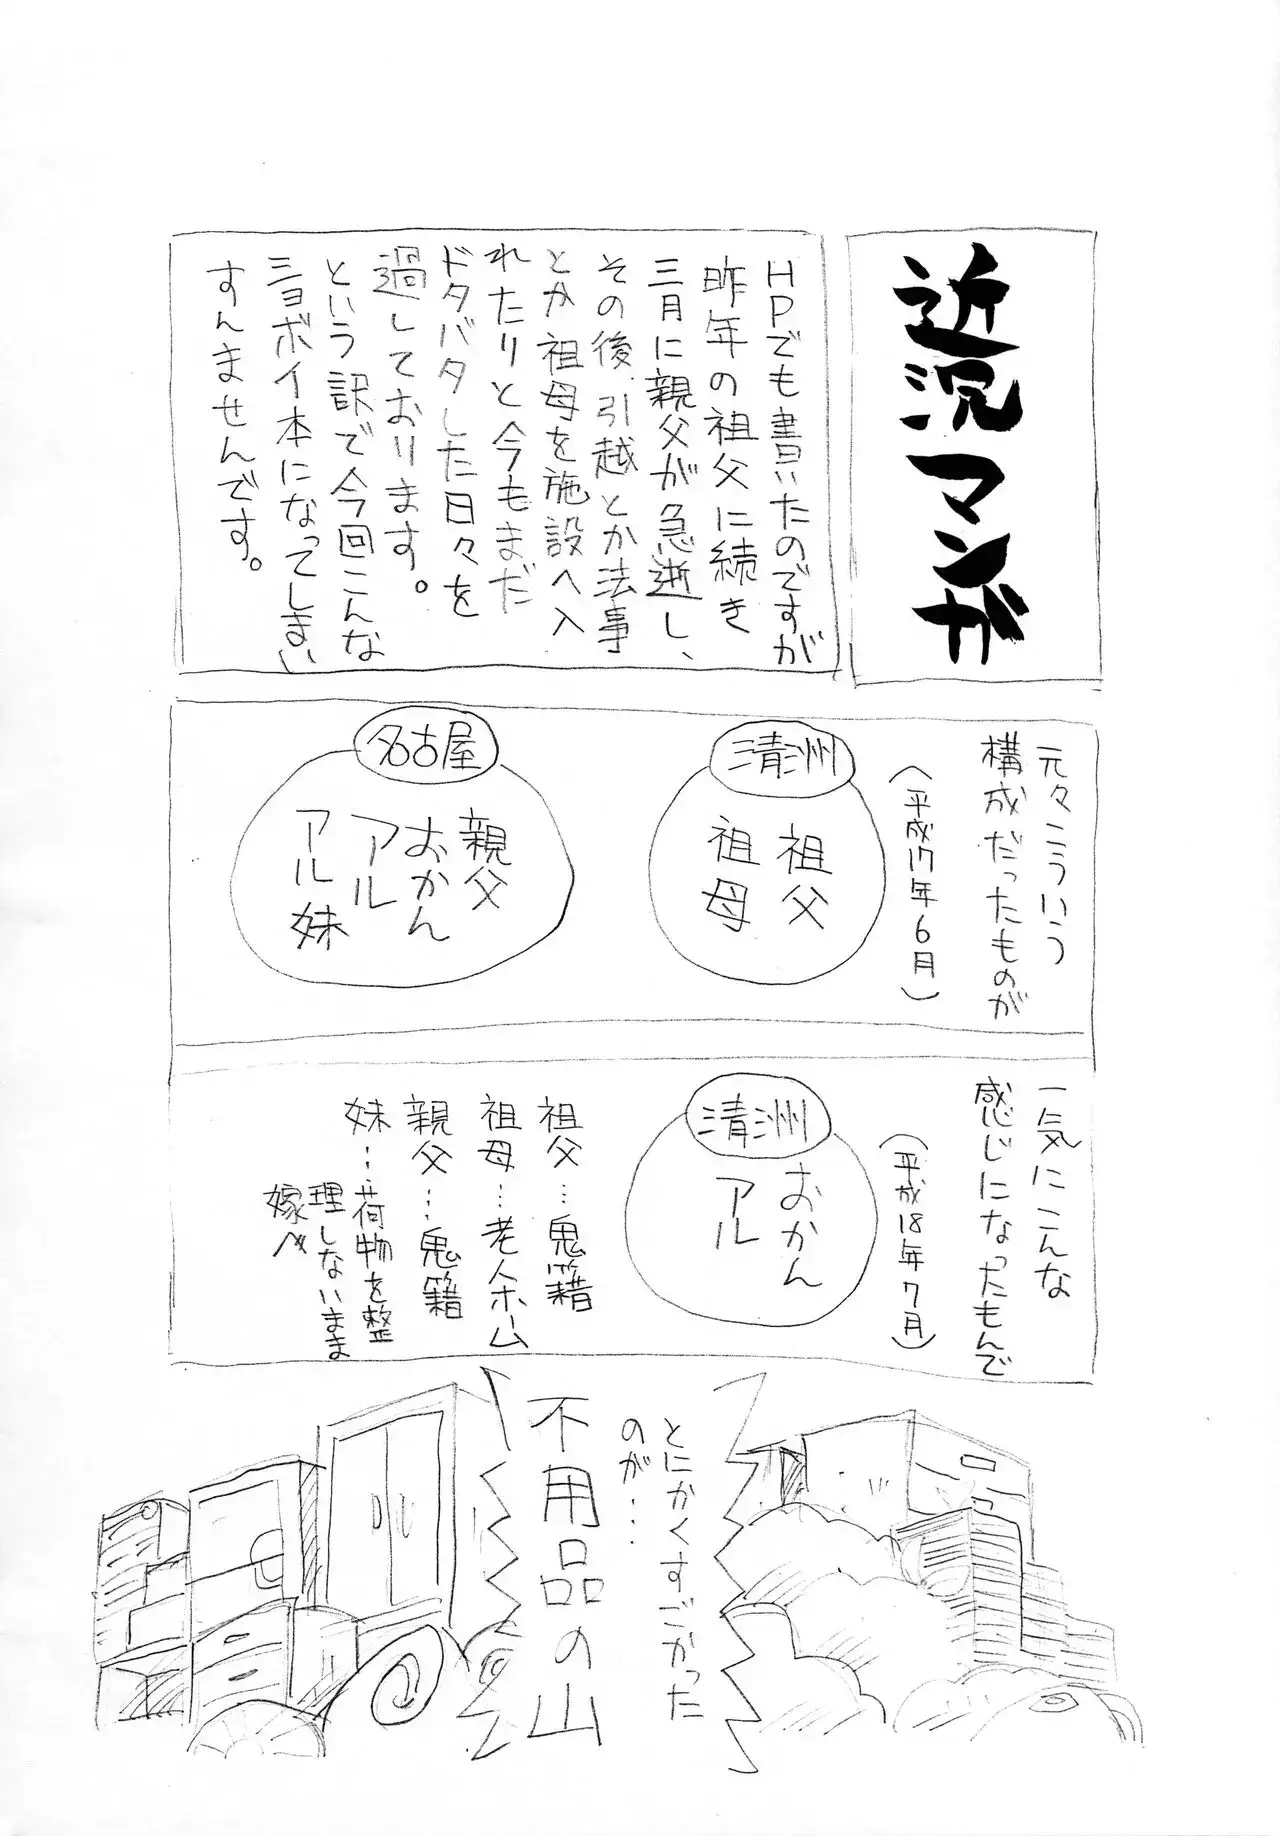 近況マンガ
HPでも書いたのですが
昨年の祖父に続き
三月に親父が急逝し、
その後引越とか法事
とか祖母を施設へ入
れたりと今もまだ
ドタバタした日々を
過しております。
という訳で今回こんな
ショボイ本になってしまい
すんませんです。
元々こういう
構成だったものが
(平成17年6月)
清洲
祖父
祖母
名古屋
親父
おかん
アル
アル妹
一気にこんな
感じになったもんで
(平成18年7月)
清洲
おかん
アル
祖父…鬼籍
祖母…老人ホーム
親父…鬼籍
妹…荷物を整
理しないまま
嫁へ
とにかくすごかった
のが…
不用品の山